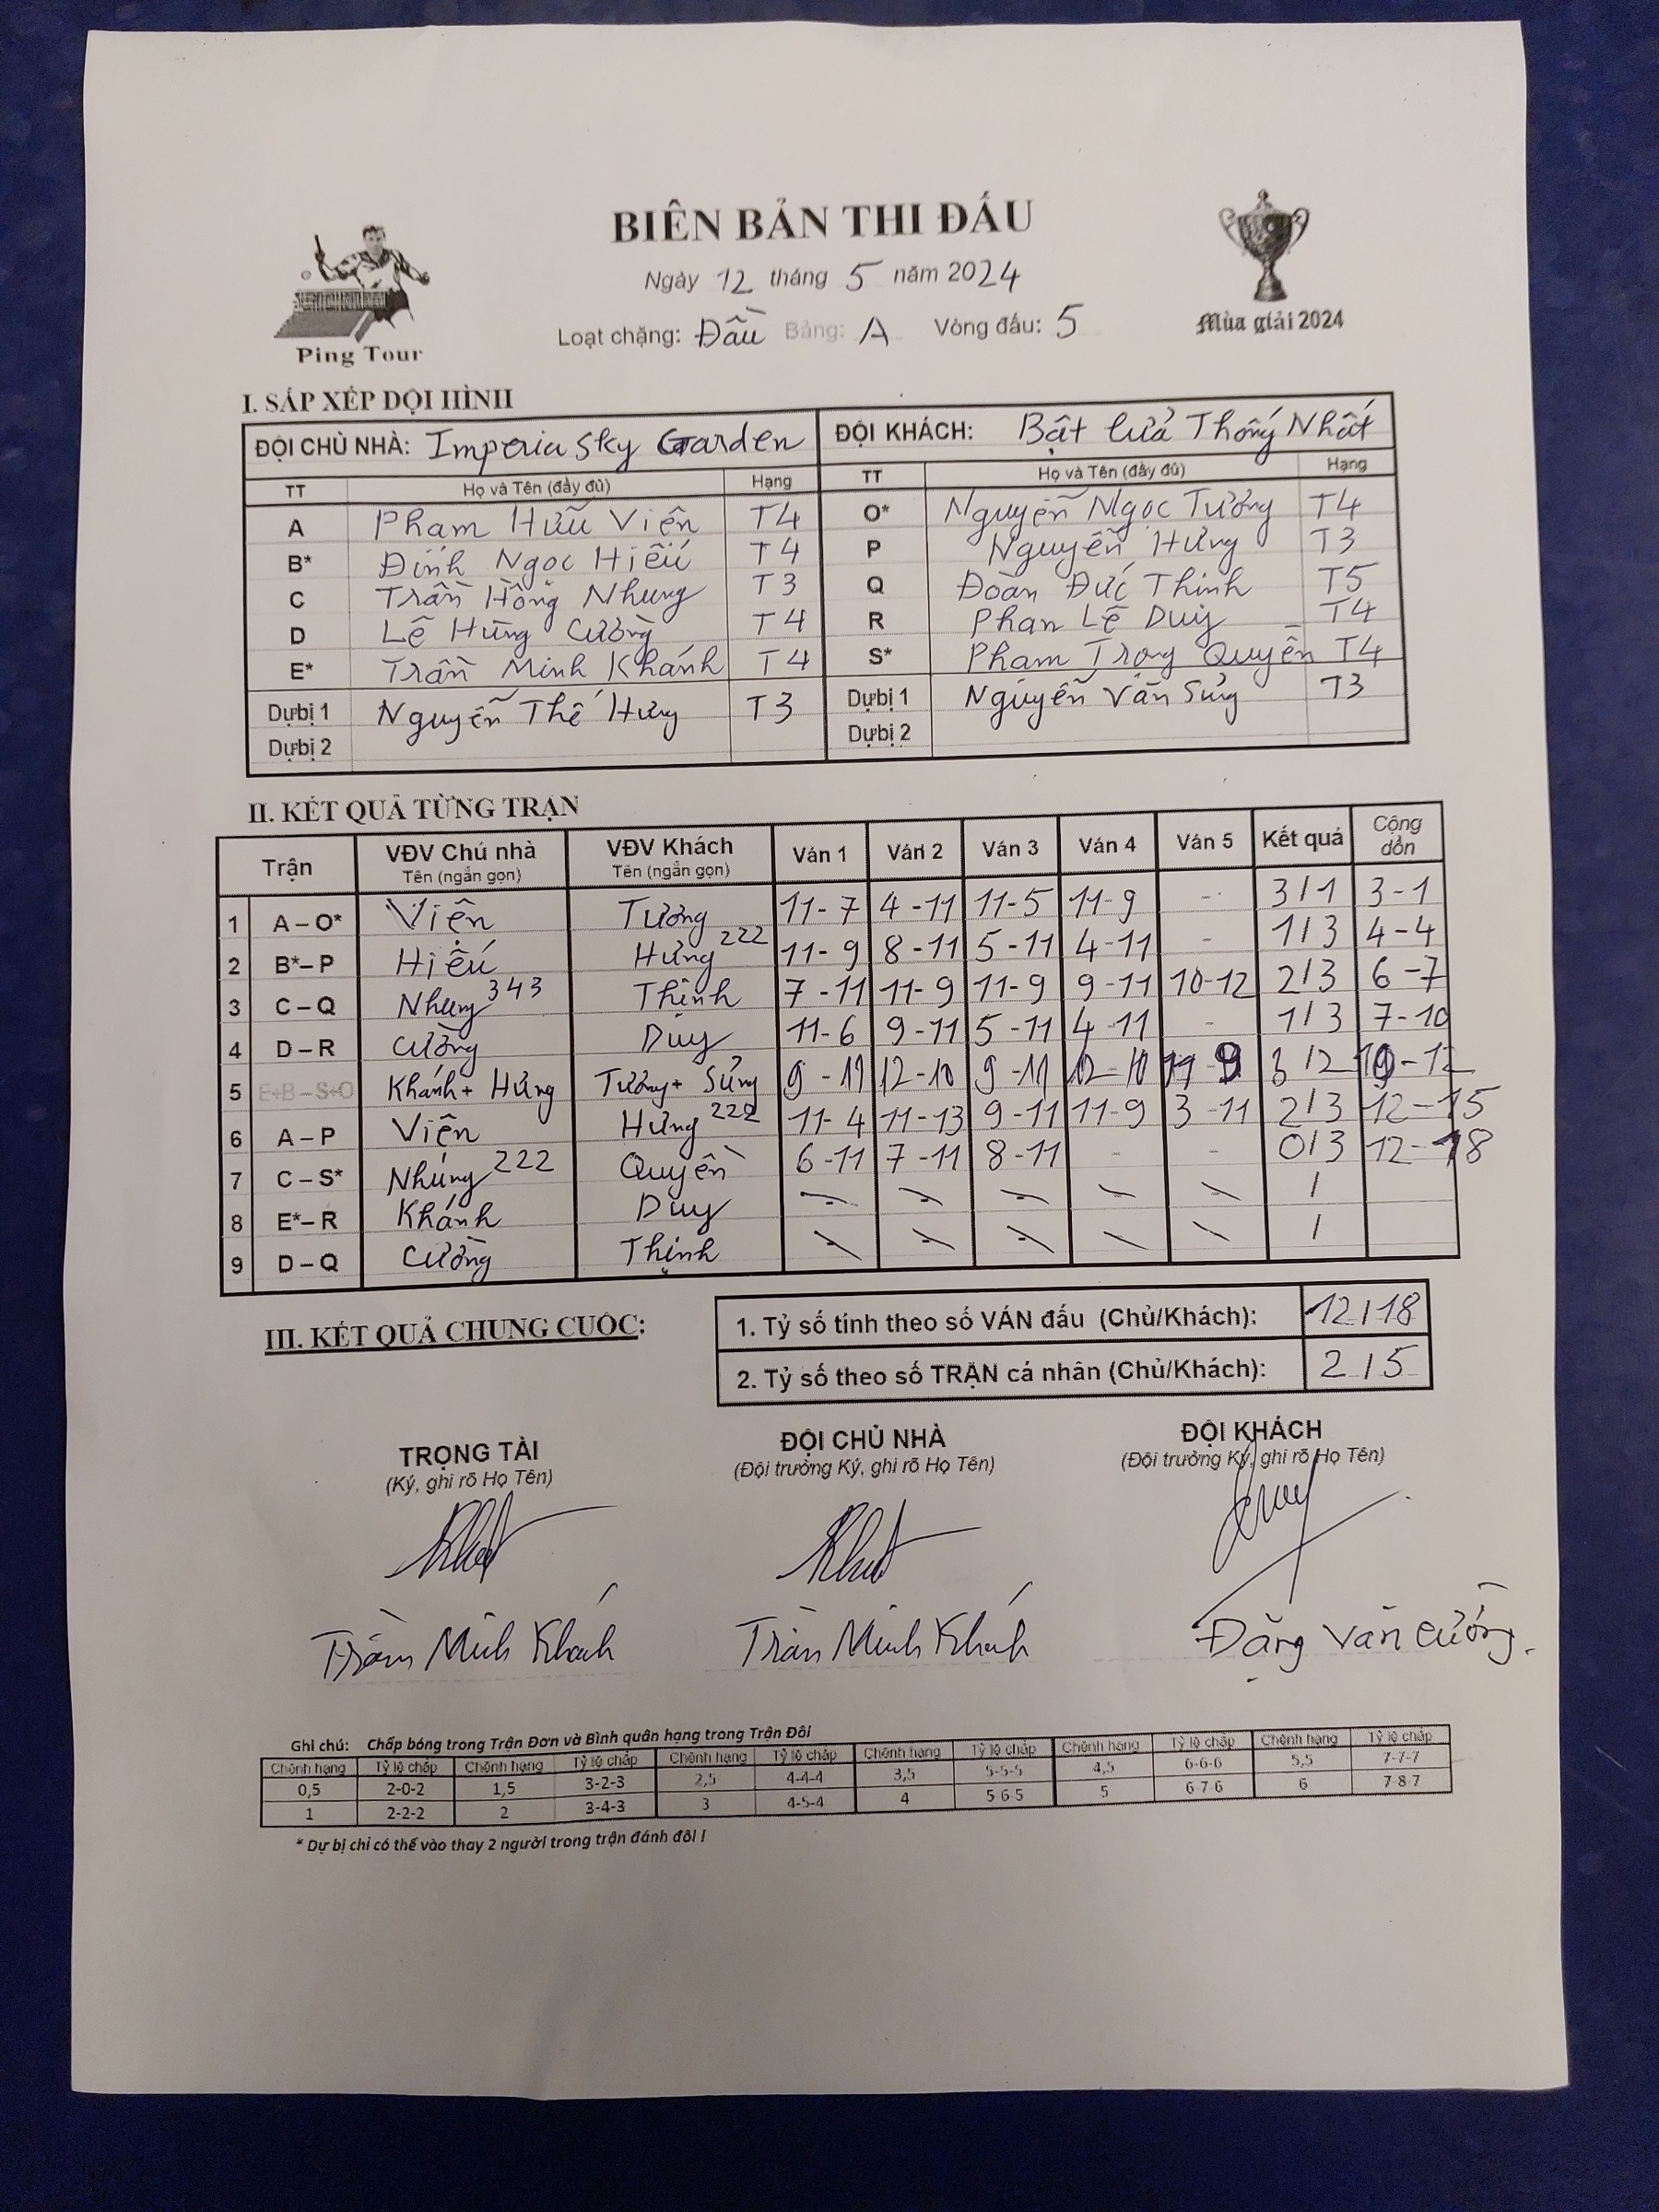 BIÊN BẢN THI ĐẤU
Ngày 12 tháng 5 năm 2024
Loạt chặng: Đầu Bảng: A Vòng đấu: 5
Ping Tour
Mùa giải 2024
I. SẮP XẾP ĐỘI HÌNH
ĐỘI CHỦ NHÀ: Imperia Sky Garden ĐỘI KHÁCH: Bật lửa Thống Nhất
TT Họ và Tên (đầy đủ) Hạng TT Họ và Tên (đầy đủ) Hạng
A Phạm Hữu Viện T4 O* Nguyễn Ngọc Tưởng T4
B* Đinh Ngọc Hiếu T4 P Nguyễn Hưng T3
C Trần Hồng Nhung T3 Q Đoàn Đức Thịnh T5
D Lê Hùng Cường T4 R Phan Lê Duy T4
E* Trần Minh Khánh T4 S* Phạm Trọng Quyền T4
Dự bị 1 Nguyễn Thế Hưng T3 Dự bị 1 Nguyễn Văn Sửng T3
Dự bị 2 Dự bị 2
II. KẾT QUẢ TỪNG TRẬN
Trận VĐV Chủ nhà Tên (ngắn gọn) VĐV Khách Tên (ngắn gọn) Ván 1 Ván 2 Ván 3 Ván 4 Ván 5 Kết quả Cộng dồn
1 A – O* Viện Tưởng 11-7 4-11 11-5 11-9 - 3/1 3-1
2 B* – P Hiếu Hưng 222 11-9 8-11 5-11 4-11 - 1/3 4-4
3 C – Q Nhung 343 Thịnh 7-11 11-9 11-9 9-11 10-12 2/3 6-7
4 D – R Cường Duy 11-6 9-11 5-11 4-11 - 1/3 7-10
5 E+B – S+O Khánh + Hưng Tưởng + Sửng 9-11 12-10 9-11 12-10 11-9 3/2 10-12
6 A – P Viện Hưng 222 11-4 11-13 9-11 11-9 3-11 2/3 12-15
7 C – S* Nhung 222 Quyền 6-11 7-11 8-11 - - 0/3 12-18
8 E* – R Khánh Duy - - - - - /
9 D – Q Cường Thịnh - - - - - /
III. KẾT QUẢ CHUNG CUỘC:
1. Tỷ số tính theo số VÁN đấu (Chủ/Khách): 12/18
2. Tỷ số theo số TRẬN cá nhân (Chủ/Khách): 2/5
TRỌNG TÀI ĐỘI CHỦ NHÀ ĐỘI KHÁCH
(Ký, ghi rõ Họ Tên) (Đội trưởng Ký, ghi rõ Họ Tên) (Đội trưởng Ký, ghi rõ Họ Tên)
Trần Minh Khánh Trần Minh Khánh Đặng Văn Cường.
Ghi chú: Chấp bóng trong Trận Đơn và Bình quân hạng trong Trận Đôi
Chênh hạng Tỷ lệ chấp Chênh hạng Tỷ lệ chấp Chênh hạng Tỷ lệ chấp Chênh hạng Tỷ lệ chấp Chênh hạng Tỷ lệ chấp Chênh hạng Tỷ lệ chấp
0,5 2-0-2 1,5 3-2-3 2,5 4-4-4 3,5 5-5-5 4,5 6-6-6 5,5 7-7-7
1 2-2-2 2 3-4-3 3 4-5-4 4 5-6-5 5 6-7-6 6 7-8-7
* Dự bị chỉ có thể vào thay 2 người trong trận đánh đôi !